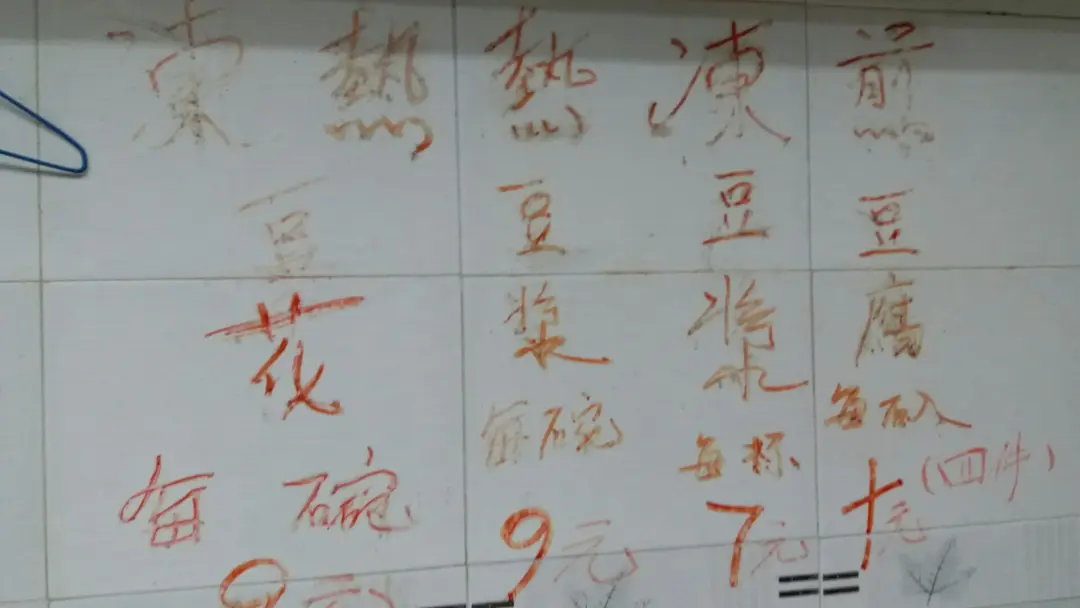 凍 熱
豆
花
每 碗
9元
熱豆漿
每碗
9元
凍豆漿
每杯
7元
煎豆腐
每
(四件)
十元